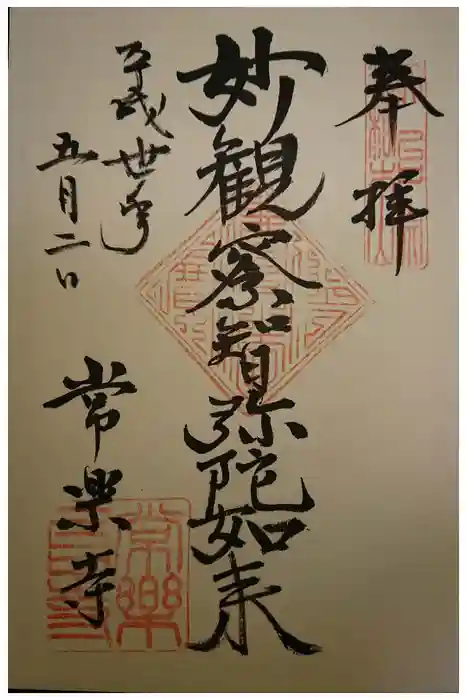 奉拝
妙観察智弥陀如来
平成世年
五月二日
常楽寺
常樂